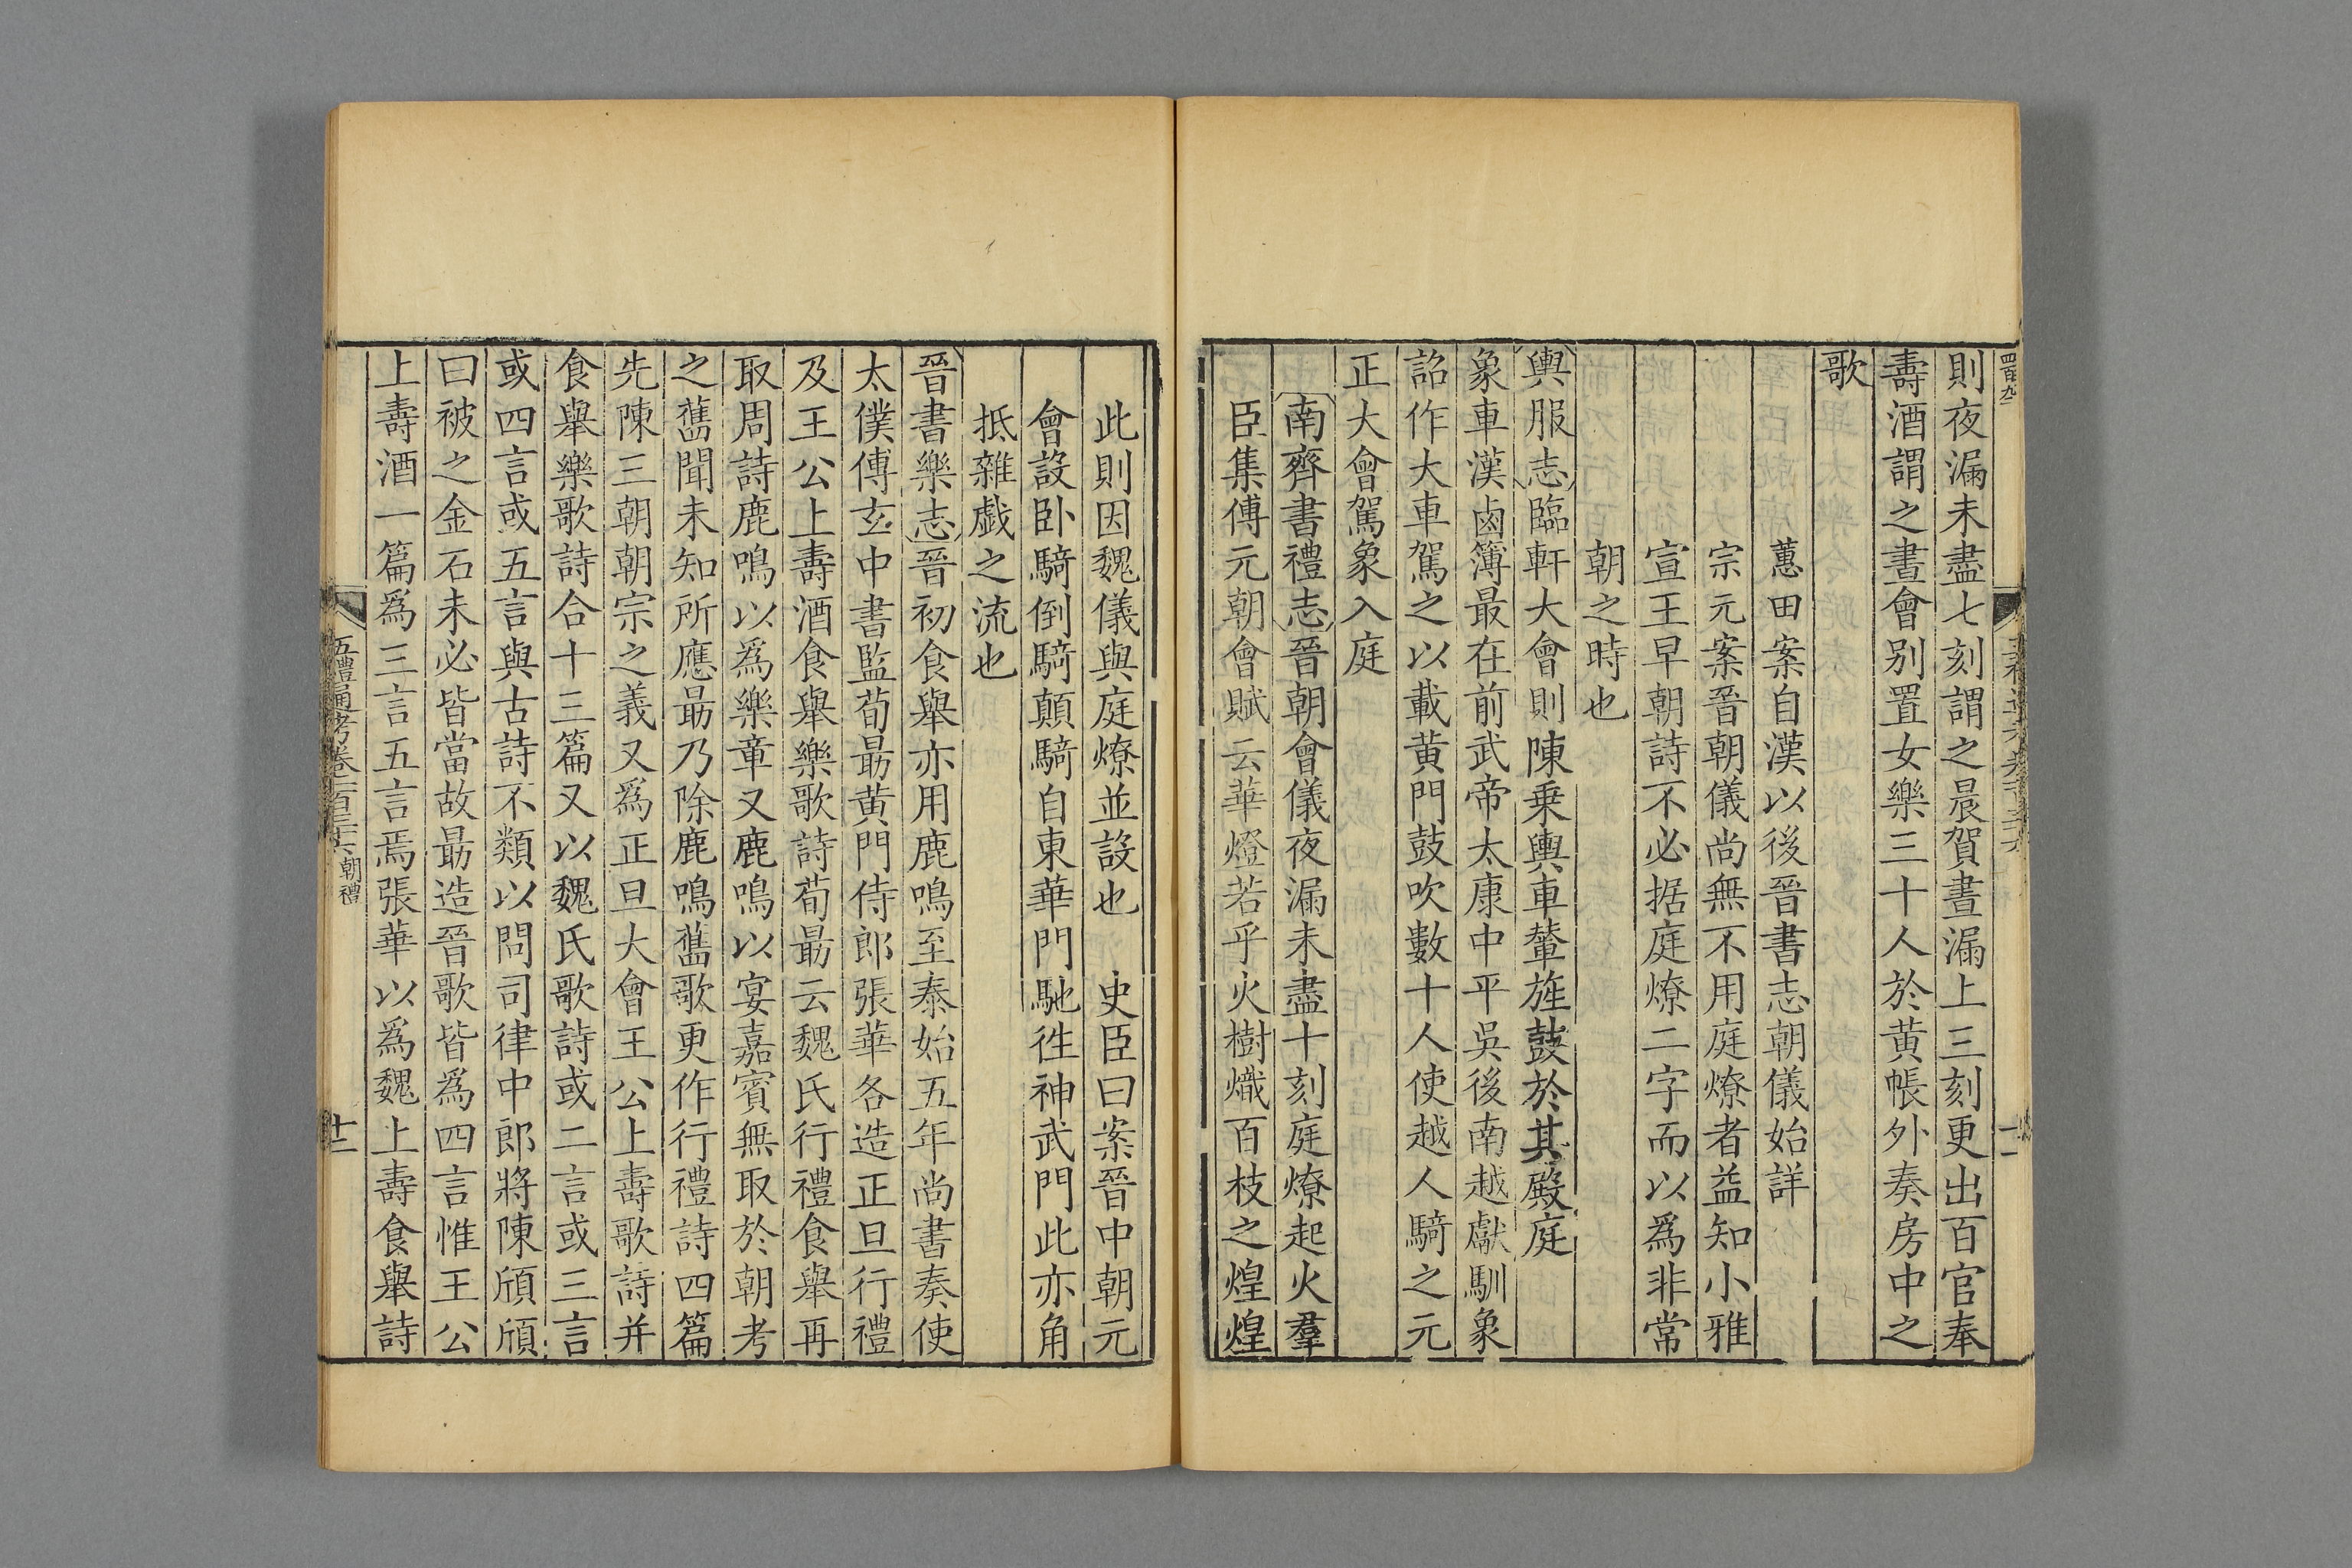 則夜漏未盡七刻謂之晨賀晝漏上三刻更出百官奉
壽酒謂之晝會别置女樂三十人於黄帳外奏房中之
歌
蕙田案自漢以後晉書志朝儀始詳
宗元案晉朝儀尚無不用庭燎者益知小雅
宣王早朝詩不必据庭燎二字而以爲非常
朝之時也
輿服志臨軒大會則陳乗輿車輦旌鼓於其殿庭
象車漢鹵簿最在前武帝太康中平吳後南越獻馴象
詔作大車駕之以載黄門鼓吹數十人使越人騎之元
正大會駕象入庭
南齊書禮志晉朝會儀夜漏未盡十刻庭燎起火羣
臣集傅元朝會賦云華燈若乎火樹熾百枝之煌煌
此則因魏儀與庭燎並設也 史臣曰案晉中朝元
會設卧騎倒騎顛騎自東華門馳徃神武門此亦角
抵雜戱之流也
晉書樂志晉初食舉亦用鹿鳴至泰始五年尚書奏使
太僕傅玄中書監荀朂黄門侍郎張華各造正旦行禮
及王公上壽酒食舉樂歌詩荀朂云魏氏行禮食舉再
取周詩鹿鳴以爲樂章又鹿鳴以宴嘉賓無取於朝考
之舊聞未知所應朂乃除鹿鳴舊歌更作行禮詩四篇
先陳三朝朝宗之義又爲正旦大會王公上壽歌詩并
食舉樂歌詩合十三篇又以魏氏歌詩或二言或三言
或四言或五言與古詩不類以問司律中郎將陳頎頎
曰被之金石未必皆當故朂造晉歌皆爲四言惟王公
上壽酒一篇爲三言五言焉張華以爲魏上壽食舉詩
五禮通考卷一百三十六 朝禮
十二